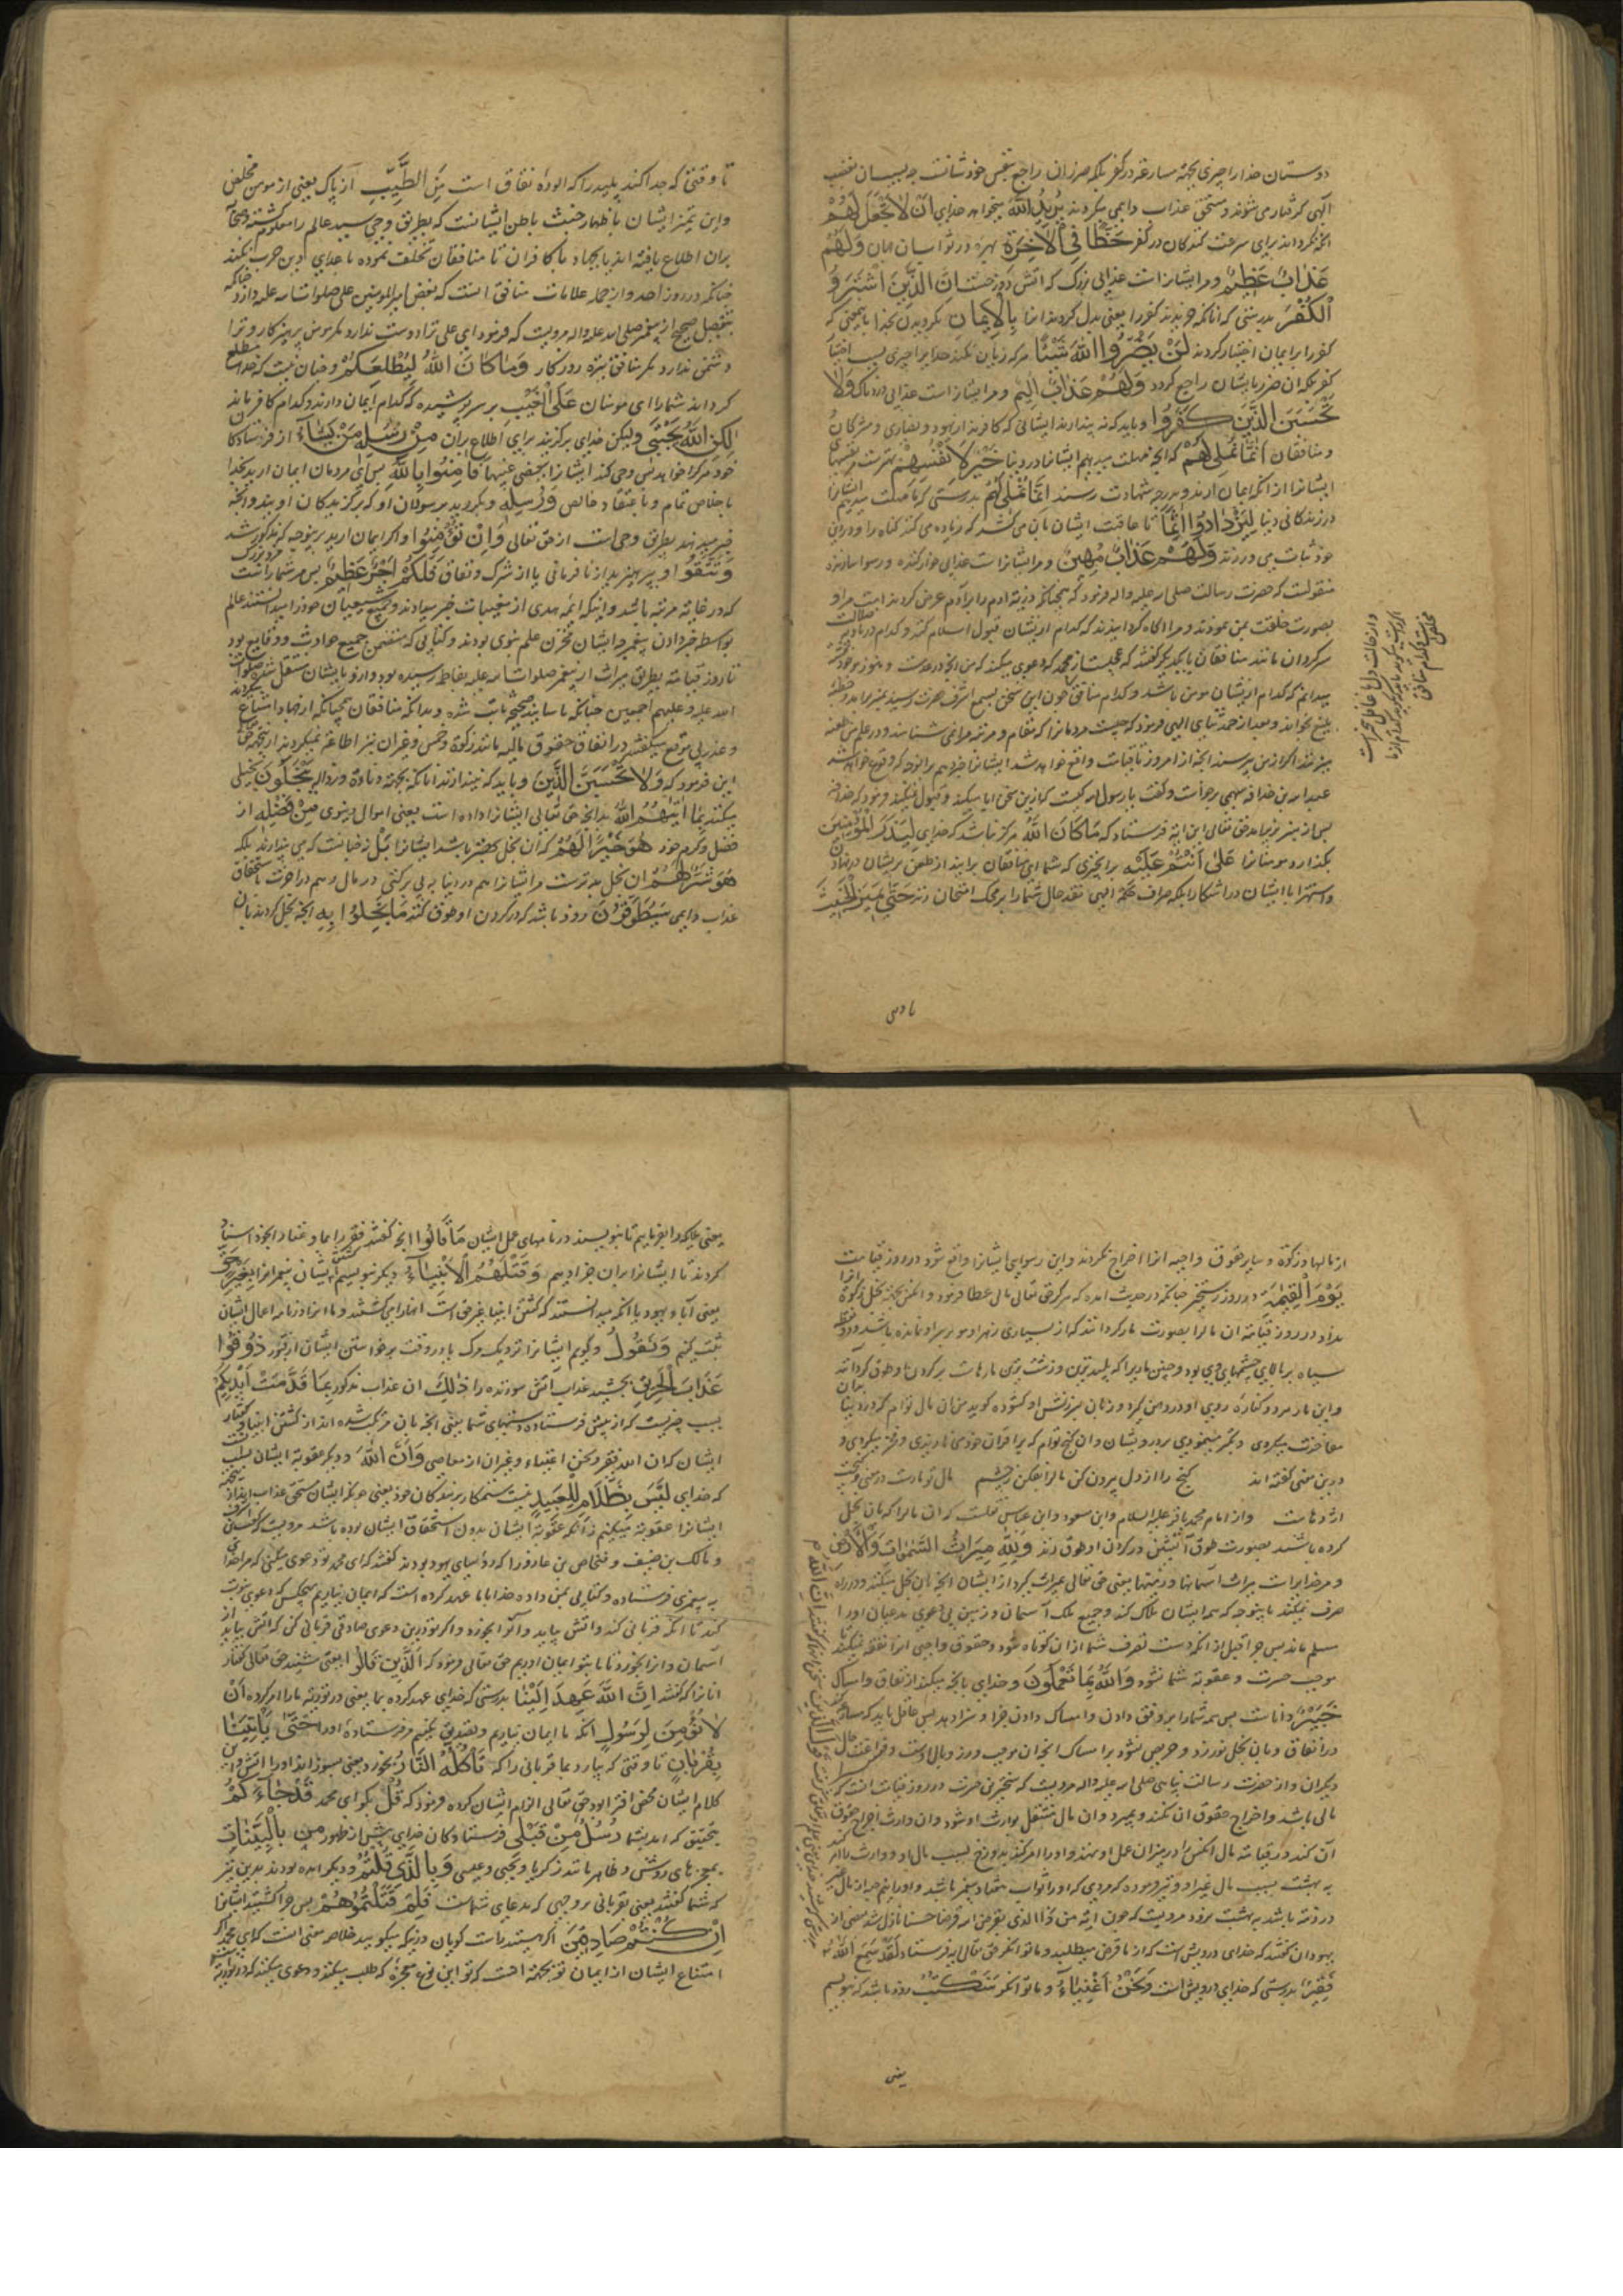 دوستان خدا را چیزی بجهة مسارعة در کفر بلکه ضرر ان راجع بنفس خودشانست چه بسبب ان بغضب
الهی گرفتار می شوند و مستحق عذاب دایمی میکردند یُرِیدُ اللّٰهُ میخواهد خدای اَنْ لَا یَجْعَلَ لَهُمْ
انکه نکرداند برای سرعت کنندکان در کفر حَظًّا فِی الْآخِرَةِ بهره در ثواب ان جهان وَلَهُمْ
عَذَابٌ عَظِیمٌ و مر ایشانراست عذابی بزرک که اتش دوزخست اِنَّ الَّذِینَ اشْتَرَوُا
الْکُفْرَ بدرستی که انانکه خریدند کفر را یعنی بدل کردند انرا بِالْاِیمَانِ بکرویدن بخدا یا بمعنی که
کفر را بر ایمان اختیار کردند لَنْ یَضُرُّوا اللّٰهَ شَیْئًا هرکز زیان نکنند خدایرا چیزی بسبب اختیار
کفر بلکه ان ضرر بایشان راجع کردد وَلَهُمْ عَذَابٌ اَلِیمٌ و مر ایشانراست عذابی دردناک وَلَا
یَحْسَبَنَّ الَّذِینَ کَفَرُوا و باید که نه پندارند ایشانی که کافرند از یهود و نصاری و مشرکان
و منافقان اَنَّمَا نُمْلِی لَهُمْ که انچه مهلت میدهیم ایشانرا در دنیا خَیْرٌ لِاَنْفُسِهِمْ بهترست مر نفسهای
ایشانرا از انکه ایمان ارند و بدرجه شهادت رسند اِنَّمَا نُمْلِی لَهُمْ بدرستی که ما مهلت میدهیم ایشانرا
در زندکانی دنیا لِیَزْدَادُوا اِثْمًا تا عاقبت ایشان بان می کشد که زیاده می کنند کناه را و در این
خود ثبات می ورزند وَلَهُمْ عَذَابٌ مُهِینٌ و مر ایشانراست عذابی خوار کننده و رسوا سازنده
منقولست که حضرت رسالت صلی اله علیه واله فرمود که همچنانکه ذریة ادم را برآدم عرض کردند امت مرا و
بصورت خلقت بمن نمودند و مرا اکاه کردانیدند که کدام از ایشان قبول اسلام کنند و کدام در بادیه ضلالت
سرکردان مانند منافقان با یکدیکر کفتند که عجبست از محمد که دعوی میکند که من انچه در عدمست و هنوز موجود نشده
میدانم که کدام از ایشان مومن باشد و کدام منافق چون این سخن بسمع اشرف حضرت رسید بمنبر برامد و خطبه
بلیغ بخواند و بعد از حمد و ثنای الهی فرمود که چیست مردمانرا که مقام و مرتبه مرا نمی شناسند و در علم من طعنه
میزنند اکر از من پرسند انچه از امروز تا قیامت واقع خواهد شد ایشانرا خبر دهم بر انوجه که وقوع خواهد شد
عبد الله بن حذافه سهمی برخاست و کفت یا رسول الله
پس از منبر بزیر امد حق تعالی این ایة فرستاد که مَا کَانَ اللّٰهُ هرکز نباشد که خدای لِیَذَرَ الْمُؤْمِنِینَ
بکذارد مومنانرا عَلٰی مَا اَنْتُمْ عَلَیْهِ بر انچیزی که شما ای منافقان برانید از طعن بر ایشان در نهان
و استهزا با ایشان در اشکارا بلکه صراف حکمة الهی نقد حال شمارا بر محک امتحان زند حَتّٰی یَمِیزَ الْخَبِیثَ
تا وقتی
تا وقتی که جدا کند پلید را که الوده نفاق است مِنَ الطَّیِّبِ از پاک یعنی از مومن مخلص
و این تمیز ایشان باظهار خبث باطن ایشانست که بطریق وحی سید عالم را معلوم کشته و صحابه
بران اطلاع یافته اند یا بجهاد با کافران تا منافقان تخلف نموده با اعدای دین حرب نکنند
چنانکه در روز احد و از جمله علامات منافق انست که بغض امیر المومنین علی صلوات الله علیه دارد چنانکه
بنقل صحیح از پیغمبر صلی الله علیه واله مرویست که فرمود ای علی ترا دوست ندارد مکر مومن پرهیزکار و ترا
دشمن ندارد مکر منافق تیره روزکار وَمَا کَانَ اللّٰهُ لِیُطْلِعَکُمْ و چنان نیست که خدای مطلع
کرداند شمارا ای مومنان عَلَی الْغَیْبِ بر سر پوشیده که کدام ایمان دارند و کدام کافرند
وَلٰکِنَّ اللّٰهَ یَجْتَبِی ولیکن خدای برکزیند برای اطلاع بران مِنْ رُسُلِهِ مَنْ یَشَاءُ از فرستادکان
خود هرکرا خواهد پس وحی کند ایشانرا ببعضی مغیبها فَاٰمِنُوا بِاللّٰهِ پس ای مردمان ایمان ارید بخدا
باخلاص تمام و باعتقاد خالص وَرُسُلِهِ و بکروید برسولان او که برکزیدکان اویند و انچه
خبر میدهند بطریق وحی است از حق تعالی وَاِنْ تُؤْمِنُوا و اکر ایمان ارید بر نوجه که مذکور شد
وَتَتَّقُوا و بپرهیزید از نافرمانی یا از شرک و نفاق فَلَکُمْ اَجْرٌ عَظِیمٌ پس مر شماراست مزدی بزرک
که در غایة مرتبه باشد و اینکه ایمه هدی از مغیبات خبر میدادند و جمیع شیعیان خود را میدانستند عالم
بواسطه خبر دادن پیغمبر چه ایشان مخزن علم نبوی بودند و کتابی که متضمن جمیع حوادث و وقایع بود
تا روز قیامة بطریق میراث از پیغمبر صلوات الله علیه بفاطمه رسیده بود و از و بایشان منتقل شد صلوات
الله علیه و علیهم اجمعین چنانکه باسانید صحیح ثابت شده و بدانکه منافقان همچنانکه از جهاد امتناع میکردند
و عذر بی موقع میکفتند در انفاق حقوق مالیه مانند زکوة و خمس و غیر ان نیز اطاعة نمیکردند ازین جهة حق تعالی
این فرمود که وَلَا یَحْسَبَنَّ الَّذِینَ و باید که نپندارند انانکه یَبْخَلُونَ بخیلی
میکنند بِمَا اٰتٰیهُمُ اللّٰهُ بدانچه حق تعالی ایشانرا داده است یعنی اموال دنیوی مِنْ فَضْلِهِ از
فضل و کرم خود هُوَ خَیْرًا لَهُمْ که ان بخل بهتر باشد ایشانرا بَلْ نه چنانست که می پندارند بلکه
هُوَ شَرٌّ لَهُمْ ان بخل بدترست مر ایشانرا هم در دنیا به بی برکتی در مال و هم در اخرت باستحقاق
عذاب دایمی سَیُطَوَّقُونَ زود باشد که در کردن او طوق کنند مَا بَخِلُوا بِهِ انچه بخل کردند بان
از مالها و زکوة و سایر حقوق واجبه انرا اخراج نکردند و این رسوایی ایشانرا واقع شود در روز قیامت
یَوْمَ الْقِیٰمَةِ در روز رستخیز چنانکه در حدیث امده که هرکرا حق تعالی مالی عطا فرمود و انکس بجهة بخل زکوة انرا
نداد در روز قیامة ان مال را بصورت مار کردانند که از بسیاری زهر او مو بر سر او نمانده باشد و دو نقطه
سیاه بر بالای چشمهای وی بود و چنین ماریرا که پلیدترین و زشت ترین مارهاست بر کردن او طوق کردانند
و این مار هر دو کناره روی او در دهن کیرد و زبان بسرزنش او کشوده کوید من ان مال توام که در دنیا بمان
مفاخرت میکردی و تکبر مینمودی بر درویشان و ان کنج توام که بر اقران خود می نازیدی و فخر میکردی و
درین معنی کفته اند کنج را از دل بیرون کن مال را بفکن ز چشم مال تو مارست در معنی و کنجت
اژدهاست و از امام محمد باقر علیه السلام و ابن مسعود و ابن عباس نقلست که ان مال را که بان بخل
کرده باشند بصورت طوق آتشین در کردن او طوق زنند وَلِلّٰهِ مِیرَاثُ السَّمٰوَاتِ وَالْاَرْضِ
و مر خدایراست میراث آسمانها و زمینها یعنی حق تعالی میراث کیرد از ایشان انچه بان بخل میکنند و در راه
صرف نمیکنند باینوجه که همه ایشان هلاک کند و جمیع ملک آسمان و زمین بی دعوی مدعیان او را
مسلم ماند پس چرا قبل از انکه دست تصرف شما از ان کوتاه شود و حقوق واجبی انرا نفقه نمیکنید تا
موجب حسرت و عقوبة شما نشود وَاللّٰهُ بِمَا تَعْمَلُونَ و خدای بانچه میکنید از انفاق و امساک
خَبِیرٌ داناست پس همه شمارا بر وفق دادن و امساک دادن جزا و سزا دهد پس عاقل باید که مسارعت
در انفاق و بان بخل نورزد و حریص نشود بر امساک انچه ان موجب وزر و وبال اوست و فراغت حال
دیکران و از حضرت رسالت پناهی صلی اله علیه واله مرویست که سخترین حسرت در روز قیامت انست که
مالی باشد و اخراج حقوق ان نکند و بمیرد و ان مال منتقل بوارث او شود و ان وارث اخراج حقوق
آن کند در قیامة مال انکس را در میزان عمل او نهند و او را امر کنند بدوزخ بسبب مال او و وارث را امر کنند
به بهشت بسبب مال غیر او
در ذمه باشد به بهشت نرود مرویست که چون ایة من ذا الذی یقرض الله قرضا حسنا نازل شد بعضی از
یهودان کفتند که خدای درویش است که از ما قرض میطلبد و ما توانکر حق تعالی ایه فرستاد لَقَدْ سَمِعَ اللّٰهُ
فَقِیرٌ بدرستی که خدای درویش است وَنَحْنُ اَغْنِیَاءُ و ما توانکر سَنَکْتُبُ زود باشد که بنویسیم
یعنی
یعنی ملایکه را بفرماییم تا بنویسند در نامهای عمل ایشان مَا قَالُوا انچه کفتند
کردند تا ایشانرا بران جزا دهیم وَقَتْلَهُمُ الْاَنْبِیَاءَ و دیکر بنویسیم کشتن ایشان پیغمبرانرا بِغَیْرِ حَقٍّ
یعنی آباء یهود با انکه میدانستند که کشتن انبیا بغیر حق است انها را می کشتند و ما انرا در نامه اعمال ایشان
ثبت کنیم وَنَقُولُ و کوییم ایشانرا نزدیک مرک یا در وقت برخواستن ایشان از قبور ذُوقُوا
عَذَابَ الْحَرِیقِ بچشید عذاب آتش سوزنده را ذٰلِکَ ان عذاب مذکور بِمَا قَدَّمَتْ اَیْدِیکُمْ
بسبب چیزیست که از پیش فرستاده دستهای شما یعنی انچه بان مرتکب شده اند از کشتن انبیا و کفتار
ایشان که ان الله فقیر و نحن اغنیاء و غیر ان از معاصی وَاَنَّ اللّٰهَ و دیکر عقوبة ایشان بسبب انست
که خدای لَیْسَ بِظَلَّامٍ لِلْعَبِیدِ نیست ستمکار بر بندکان خود
ایشانرا عقوبة میکنیم نه آنکه عقوبة ایشان بدون استحقاق ایشان بوده باشد مرویست که کعب بن اشرف
و مالک بن ضیف و فنحاص بن عازورا که رؤسای یهود بودند کفتند که ای محمد تو دعوی میکنی که مرا خدای
به پیغمبری فرستاده و کتابی بمن داده خدا با ما عهد کرده است که ایمان نیاریم بهیچکس که دعوی نبوت
کند تا انکه قربانی کند و آتش بیاید و آنرا بخورد و اکر تو درین دعوی صادقی قربانی کن که اتش بیاید از
آسمان و انرا بخورد تا ما بتو ایمان اوریم حق تعالی فرمود که اَلَّذِینَ قَالُوا یعنی شنید حق تعالی کفتار
انانرا که کفتند اِنَّ اللّٰهَ عَهِدَ اِلَیْنَا بدرستی که خدای عهد کرده بما یعنی در توریة ما را امر کرده اَنْ
لَا نُؤْمِنَ لِرَسُولٍ انکه ما ایمان نیاریم و تصدیق نکنیم مر فرستاده او را حَتّٰی یَاْتِیَنَا
بِقُرْبَانٍ تا وقتی که بیارد بما قربانی را که تَاْکُلُهُ النَّارُ بخورد یعنی بسوزاند او را اتش و این
کلام ایشان محض افترا بود حق تعالی الزام ایشان کرده فرمود که قُلْ بکو ای محمد قَدْ جَاءَکُمْ
بتحقیق که امد بشما رُسُلٌ مِنْ قَبْلِی فرستادکان خدای پیش از ظهور من بِالْبَیِّنَاتِ
بمعجزهای روشن و ظاهر مانند زکریا و یحیی و عیسی وَبِالَّذِی قُلْتُمْ و دیکر امده بودند بدین چیز
که شما کفتید یعنی بقربانی بر وجهی که مدعای شماست فَلِمَ قَتَلْتُمُوهُمْ پس چرا کشتید ایشانرا
اِنْ کُنْتُمْ صَادِقِینَ اکر هستید راست کویان در انکه میکویید خلاصه معنی انست که ای محمد اکر
امتناع ایشان از ایمان تو بجهة انست که تو این نوع معجزه که طلب میکنند و دعوی میکنند که در توریة